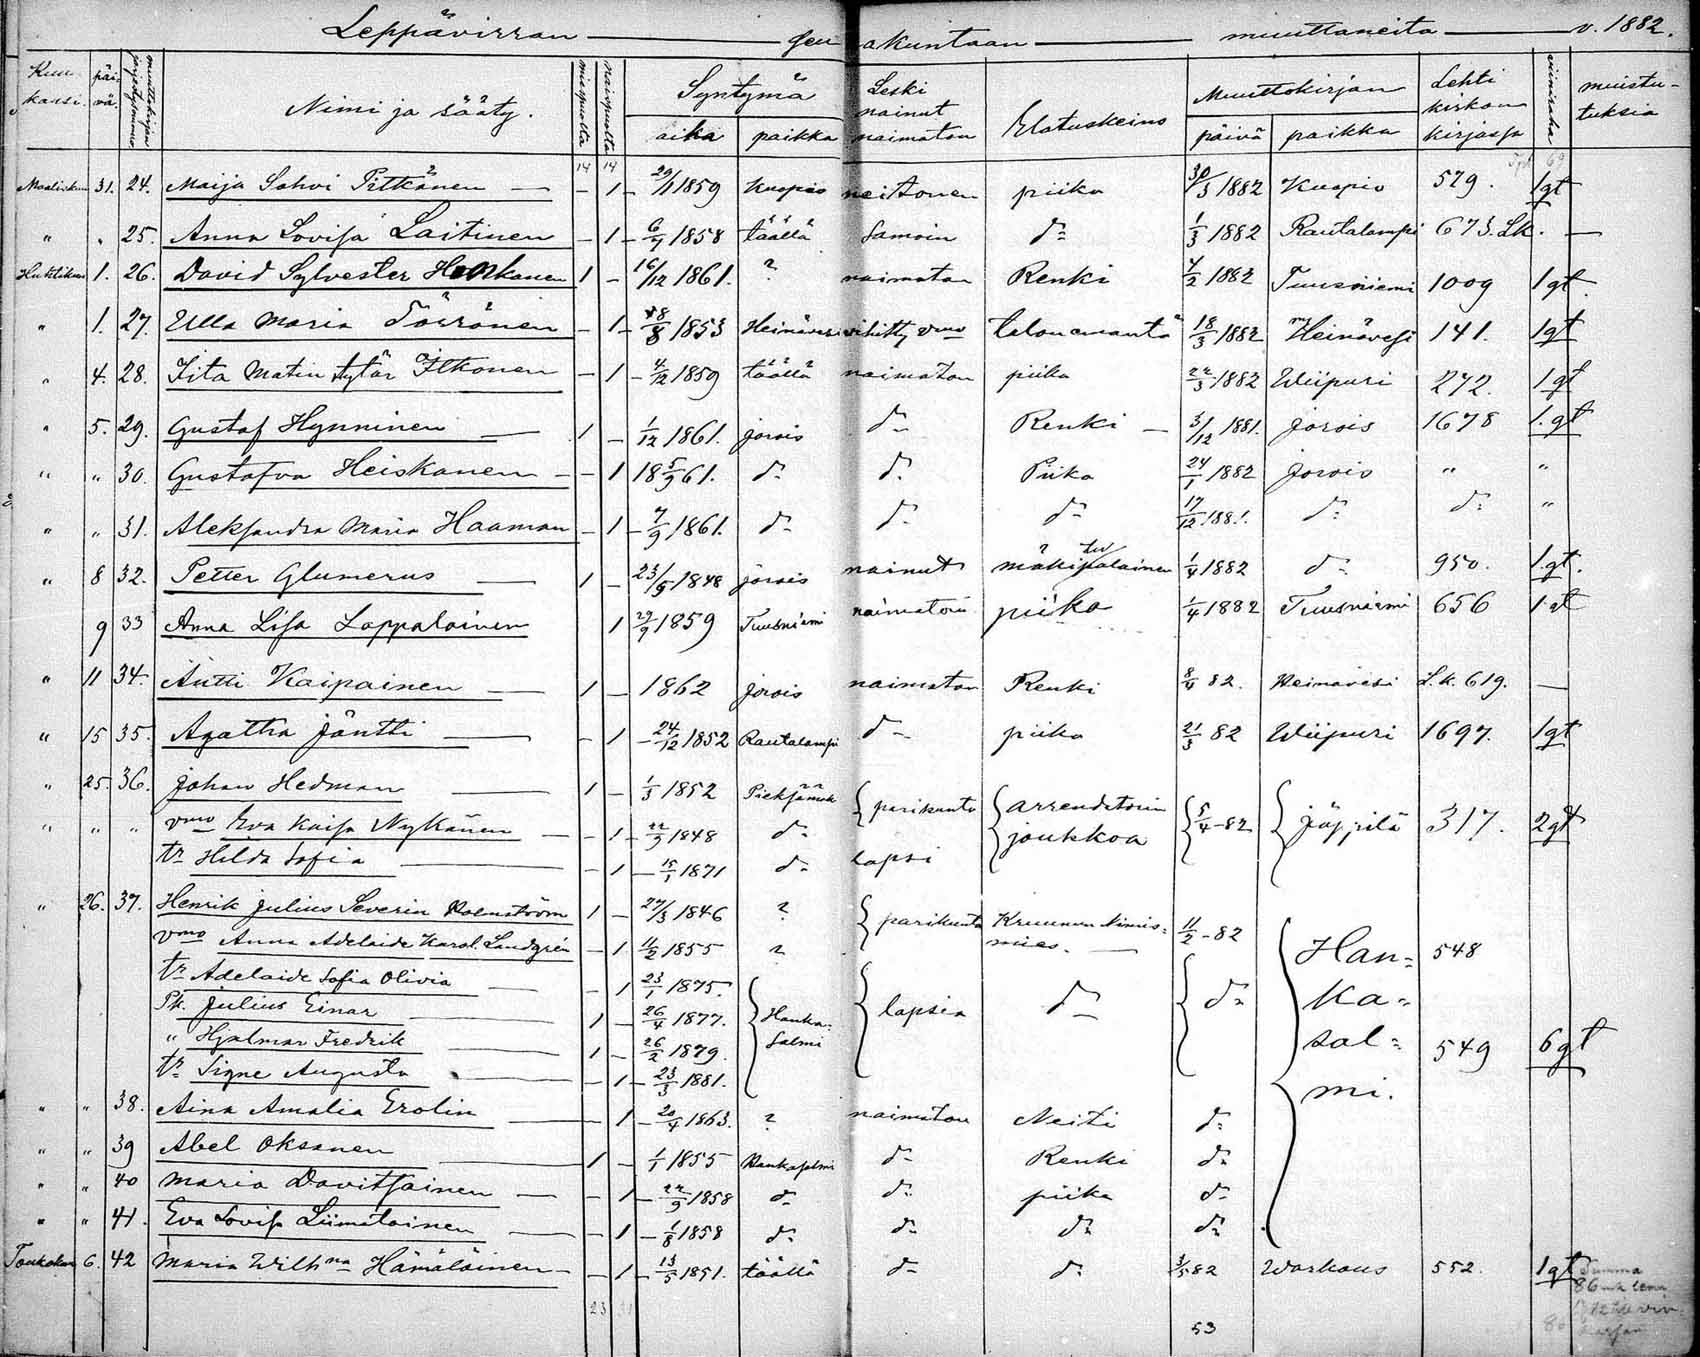 Leppävirran seurakuntaan muuttaneita v. 1882.
Kuukausi. päivä. muuttokirjan järjestysnumero Nimi ja sääty. miespuolta naispuolta Syntymä aika paikka Leski nainut naimaton Elatuskeino Muuttokirjan päivä paikka Lehti kirkonkirjassa viiniraha muistutuksia
14 14
Maalisk. 31. 24. Maija Sohvi Pitkänen — 1 — 29/1 1859 Kuopio neitonen piika 30/3 1882 Kuopio 579. 1gt
" " 25. Anna Lovisa Laitinen — 1 — 6/7 1858 täällä samoin do 1/3 1882 Rautalampi 673. Lk. —
Huhtikuu 1. 26. David Sylvester Honkanen 1 — 16/12 1861. ? naimaton Renki 4/2 1882 Tuusniemi 1009 1gt.
" 1. 27. Ulla Maria Törrönen — 1 — 18/8 1853 Heinävesi vihitty vmo talonemäntä 18/3 1882 Heinävesi 141. 1gt
" 4. 28. Iita Matin tytär Itkonen — 1 — 4/12 1859 täällä naimaton piika 22/3 1882 Wiipuri 272. 1gt
" 5. 29. Gustaf Hynninen — 1 — 1/12 1861. Jorois do Renki — 3/12 1881. Jorois 1678 1.gt
" " 30. Gustafva Heiskanen — — 1 18 5/9 61. do do Piika 24/1 1882 Jorois " "
" " 31. Aleksandra Maria Haaman — 1 — 7/9 1861. do do do 17/12 1881. do do "
" 8 32. Petter Glumerus — 1 — 23/5 1848 Jorois nainut mäkitupalainen 1/4 1882 do 950. 1.gt.
9 33 Anna Lisa Lappalainen 1 29/9 1859 Tuusniemi naimatoin piika 1/4 1882 Tuusniemi 656 1 gt
" 11 34. Antti Kaipainen — 1 — 1862 Jorois naimaton Renki 8/4 82. Heinävesi L.k. 619. —
" 15 35. Agatha Jäntti — — 1 — 24/12 1852 Rautalampi do piika 21/3 82 Wiipuri 1697. 1gt
" 25. 36. Johan Hedman — 1 — 1/3 1852 Pieksämäk parikunta arrendatorin joukkoa 5/4 -82 Jäppilä 317. 2gt
" " " vmo Eva Kaisa Nykänen — — 1 — 22/9 1848 do
tr Hilda Sofia — — 1 — 15/1 1871 do lapsi
" 26. 37. Henrik Julius Severin Holmström 1 — 27/3 1846 ? parikunta Kruunun Nimismies. — 11/2 -82 Hankasalmi. 548
vmo Anna Adelaide Karol. Lundgrén — 1 11/2 1855 ?
tr Adelaide Sofia Olivia — — 1 23/1 1875. Hankasalmi lapsia do do
Pk. Julius Einar — 1 — 26/4 1877.
" Hjalmar Fredrik — 1 — 26/2 1879. 549 6gt
tr Signe Augusta — — 1 — 23/3 1881.
" " 38. Aina Amalia Erolin — — 1 — 20/4 1863. ? naimaton Neiti do
" " 39 Abel Oksanen — 1 — 1/1 1855 Hankasalmi do Renki do
" " 40 Maria Davitsainen — — 1 — 22/9 1858 do do piika do
" " 41. Eva Lovisa Liimatainen — — 1 — 1/8 1858 do do do do
Toukokuu 6. 42 Maria Wilhna Hämäläinen — — 1 — 13/5 1851. täällä do do 3/5 82 Warkaus 552. 1gt
Summa
23
53